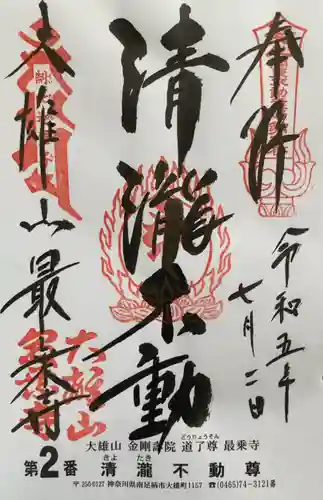 奉拝
令和五年
七月二日
清瀧不動
大雄山最乗寺
大雄山
大雄山 金剛壽院 道了尊 最乗寺
どうりょうそん
第2番 清瀧不動尊
きよ たき
〒250-0127 神奈川県南足柄市大雄町1157 ☎(0465)74-3121番